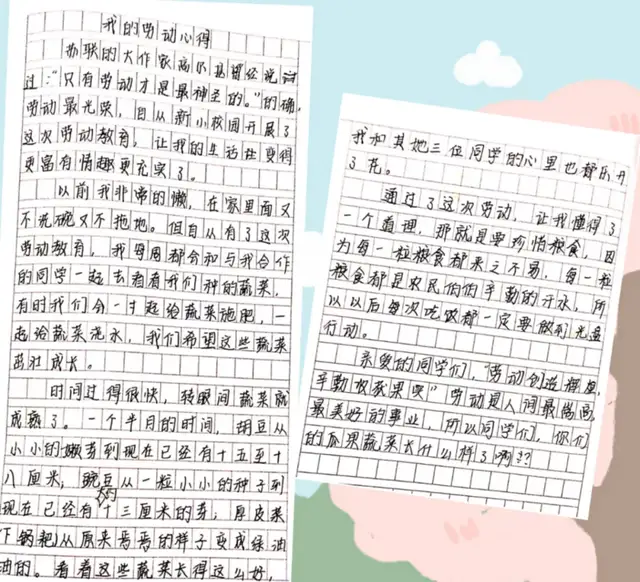 我的劳动心得
苏联的大作家高尔基曾经说过
过："只有劳动才是最神圣的。"的确，
劳动最光荣，自从新小校园开展了
这次劳动教育，让我的生活在变得
更富有情趣更充实了。
以前我非常的懒，在家里面又
不洗碗又不拖地。但自从有了这次
劳动教育，我每周都会和与我合作
的同学一起去看看我们种的蔬菜，
有时我们会一起给蔬菜施肥，一
起给蔬菜浇水，我们希望这些蔬菜
茁壮成长。
时间过得很快，转眼间蔬菜就
成熟了。一个半月的时间，胡豆从
小小的嫩芽到现在已经有十五至十
八厘米，豌豆从一粒小小的种子到
现在已经有十三厘米的芽，厚皮菜
(下锅耙)从原来焉焉的样子变成绿油
油的。看着这些蔬菜长得这么好，
我和其她三位同学的心里也都乐开
了花。
通过了这次劳动，让我懂得了
一个道理，那就是要珍惜粮食，因
为每一粒粮食都来之不易，每一粒
粮食都是农民伯伯辛勤的汗水，所
以以后每次吃饭都一定要做到光盘
行动。
亲爱的同学们，"劳动创造辉煌，
辛勤收获果实"劳动是人间最崇高，
最美好的事业，所以同学们，你们
的瓜果蔬菜长什么样了啊??